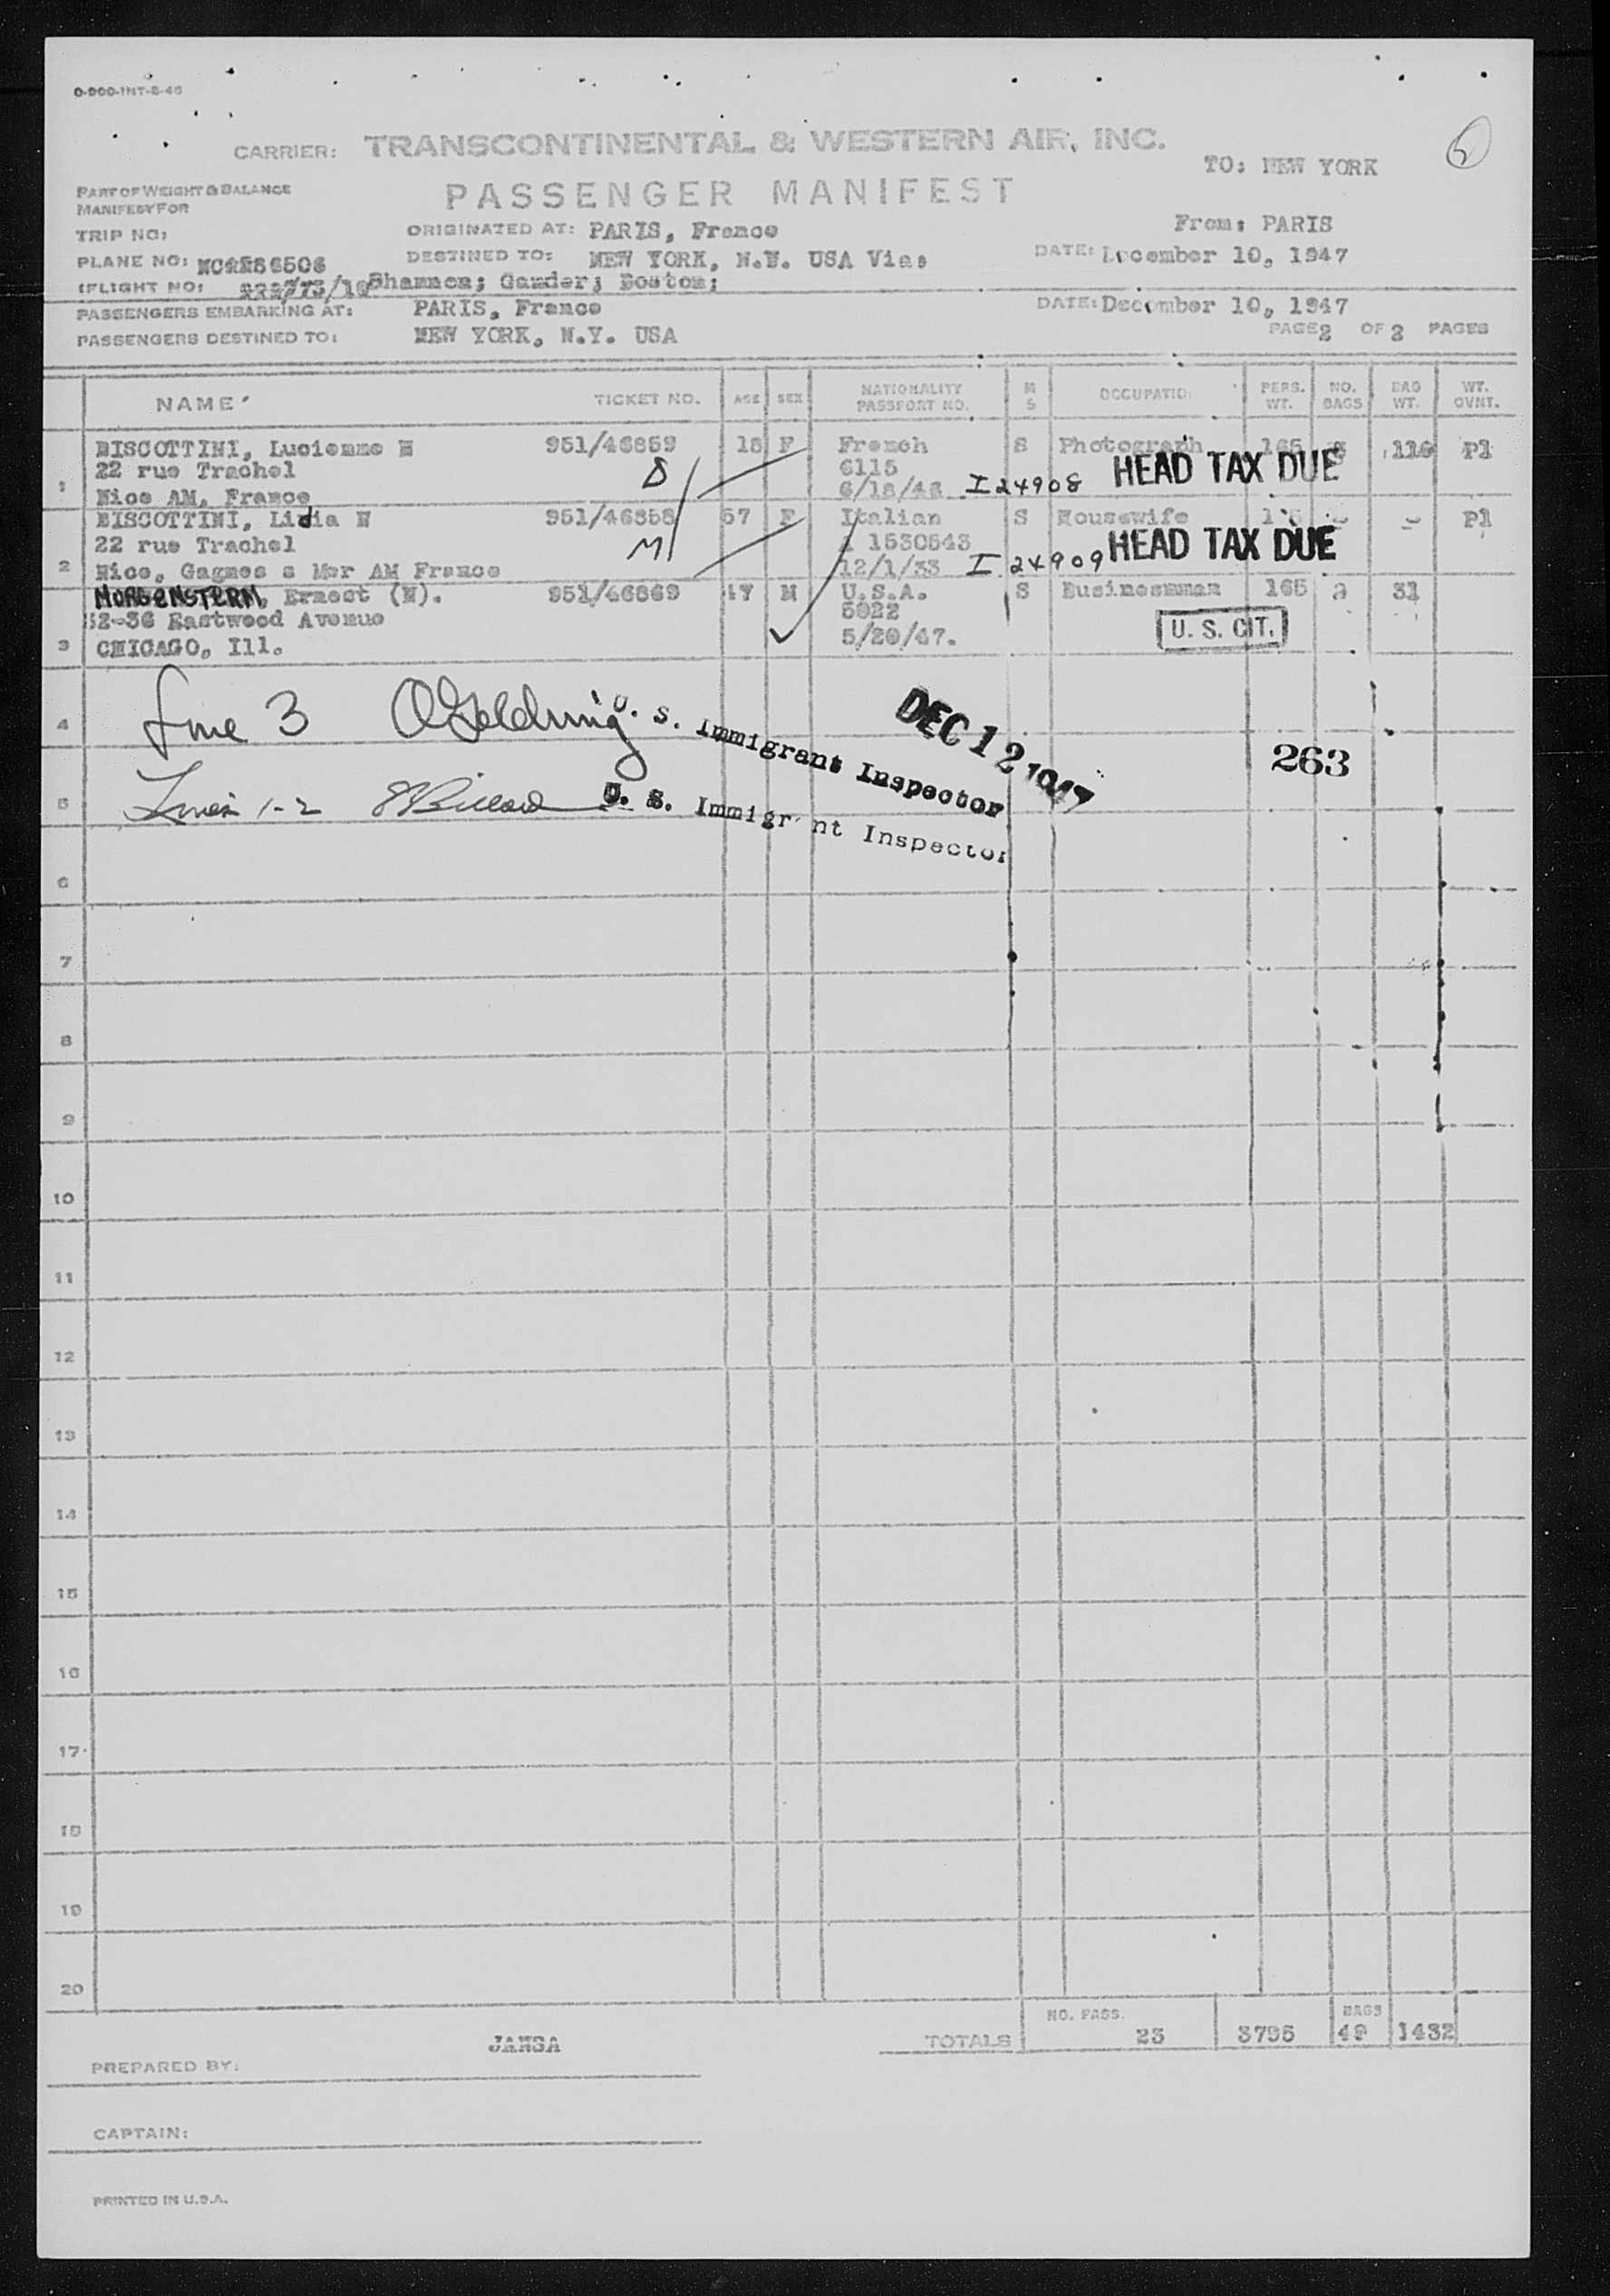 O-900-INT-8-46
CARRIER: TRANSCONTINENTAL & WESTERN AIR, INC.
TO: NEW YORK
PART OF WEIGHT & BALANCE
MANIFEST FOR
PASSENGER MANIFEST
From: PARIS
TRIP NO:
ORIGINATED AT: PARIS, France
PLANE NO:
DESTINED TO: NEW YORK, N.Y. USA Via:
DATE: December 10, 1947
FLIGHT NO: Shannon; Gander; Boston;
PASSENGERS EMBARKING AT: PARIS, France
DATE: December 10, 1947
PASSENGERS DESTINED TO: NEW YORK, N.Y. USA
PAGE 2 OF 2 PAGES
NAME TICKET NO. AGE SEX NATIONALITY PASSPORT NO. M S OCCUPATIO PERS. WT. NO. BAGS BAG WT. WT. OVNT.
BISCOTTINI, Lucienne N 951/46859 18 F French S Photograph 165 116 Pl
22 rue Trachel S 6115 HEAD TAX DUE
1 Nice AM, France 6/18/46 I 24908
BISCOTTINI, Lidia N 951/46858 57 F Italian S Housewife Pl
22 rue Trachel M 1530543 HEAD TAX DUE
2 Nice, Gagnes s Mer AM France 12/1/33 I 24909
MORGENSTERN, Ernest (N). 951/46869 47 M U.S.A. S Businessman 165 2 31
52-36 Eastwood Avenue 5022 U. S. CIT.
3 CHICAGO, Ill. 5/20/47.
4 Line 3 U. S. Immigrant Inspector DEC 12 1947
263
5 Lines 1-2 U. S. Immigrant Inspector
6
7
8
9
10
11
12
13
14
15
16
17
18
19
20
TOTALS NO. PASS. 23 3795 BAGS 49 1432
PREPARED BY: JANSA
CAPTAIN:
PRINTED IN U.S.A.